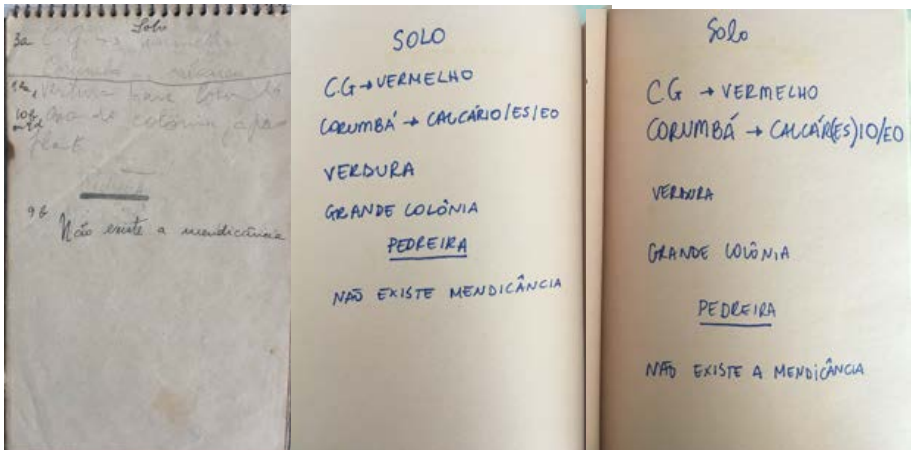 Solo
3a
Não existe a mendicância
SOLO
C.G → VERMELHO
CORUMBÁ → CALCÁRIO/ES/EO
VERDURA
GRANDE COLÔNIA
PEDREIRA
NÃO EXISTE MENDICÂNCIA
Solo
C.G → VERMELHO
CORUMBÁ → CALCÁR(ES)IO/EO
VERDURA
GRANDE COLÔNIA
PEDREIRA
NÃO EXISTE A MENDICÂNCIA